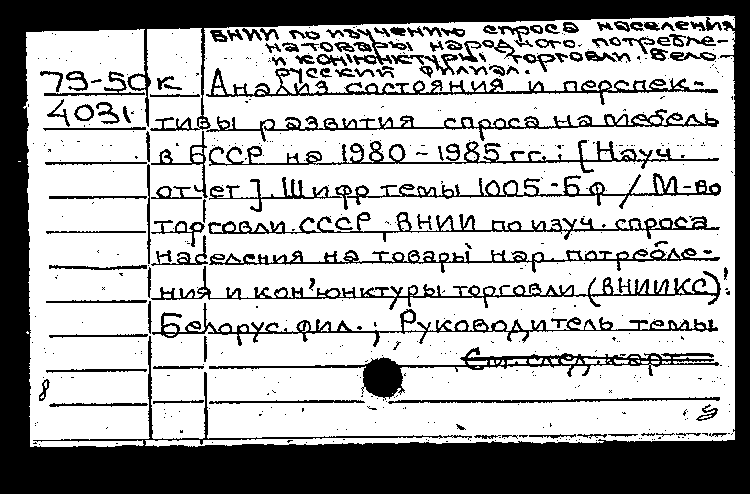 ВНИИ по изучению спроса населения
на товары народного потребле-
и конъюнктуры торговли. Бело-
русский филиал.
79-50к Анализ состояния и перспек-
4031 тивы развития спроса на мебель
в БССР на 1980-1985 гг.: [Науч.
отчет]. Шифр темы 1005-Бф / М-во
торговли СССР, ВНИИ по изуч. спроса
населения на товары нар. потребле-
ния и кон'юнктуры торговли (ВНИИКС).
Белорус. фил.; Руководитель темы
См. след. карт
8